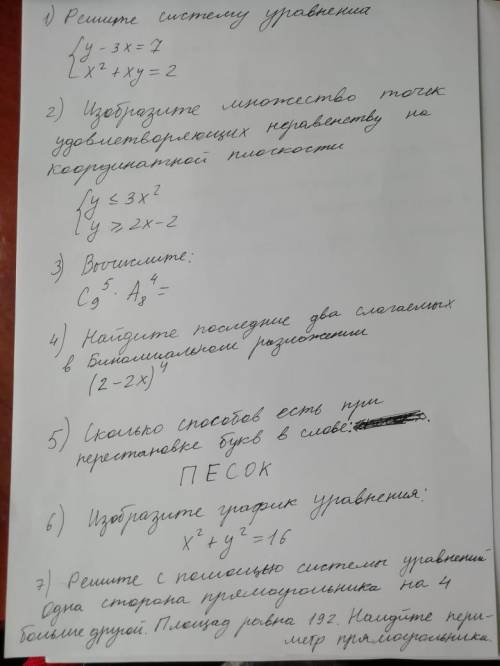 1) Решите систему уравнениа
{y - 3x = 7
x² + xy = 2
2) Изобразите множество точек
удовлетворяющих неравенству на
координатной плоскости
{y ≤ 3x²
y ≥ 2x-2
3) Вычислите:
C₉⁵ · A₈⁴ =
4) Найдите последние два слагаемых
в Биномиальном разложении
(2-2x)⁴
5) Сколько способов есть при
перестановке букв в слове:
ПЕСОК
6) Изобразите график уравнения:
x² + y² = 16
7) Решите с помощью системы уравнений
Одна сторона прямоугольника на 4
больше другой. Площад равна 192. Найдите пери-
метр прямоугольника.